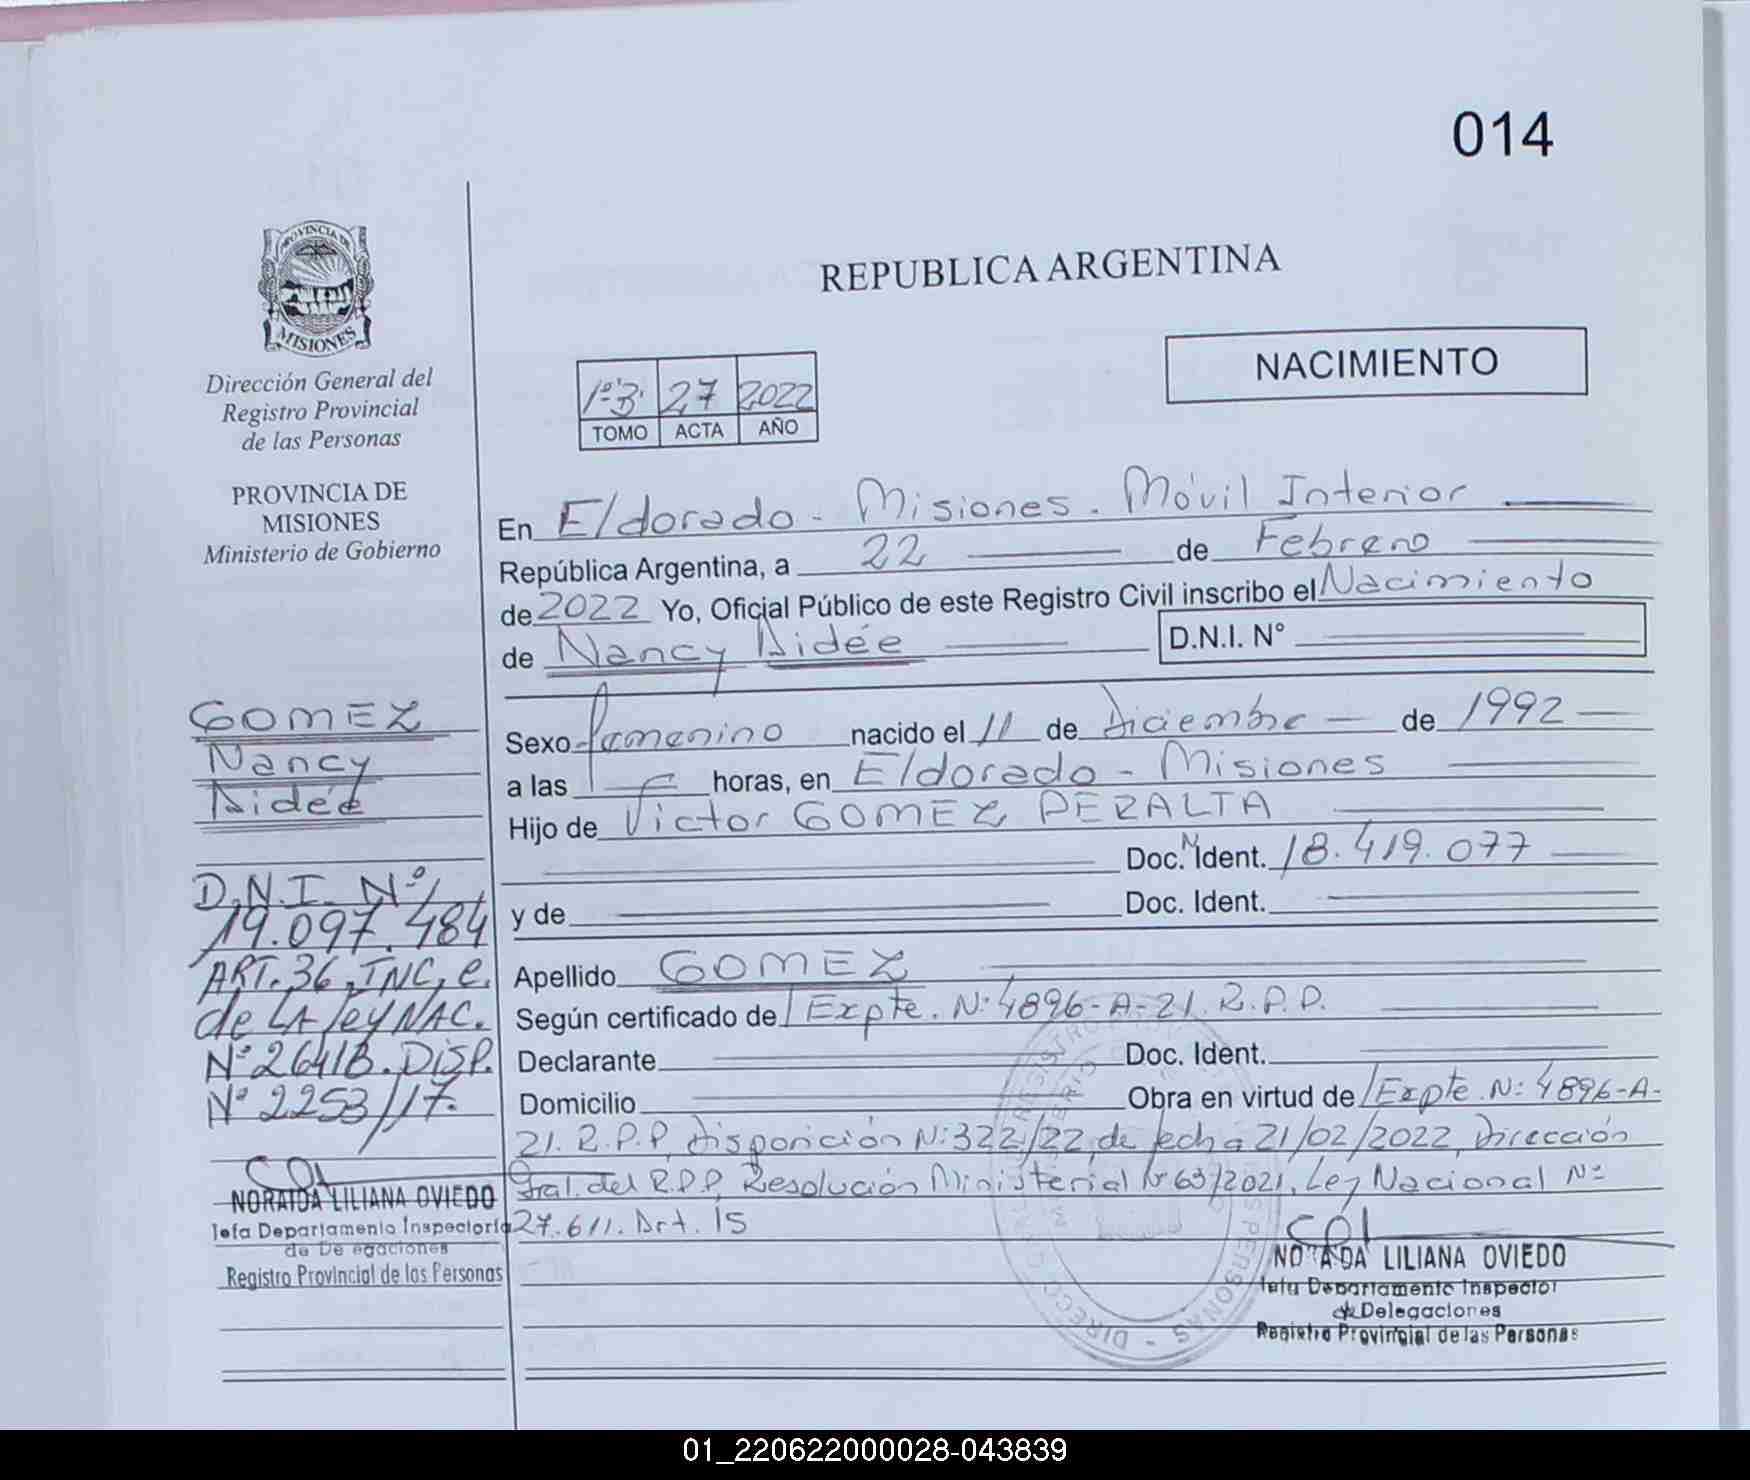 014
PROVINCIA DE
MISIONES
REPUBLICA ARGENTINA
NACIMIENTO
Dirección General del
Registro Provincial
de las Personas
PROVINCIA DE
MISIONES
Ministerio de Gobierno
1º B. 27 2022
TOMO ACTA AÑO
En Eldorado - Misiones. Móvil Interior
República Argentina, a 22 de Febrero
de 2022 Yo, Oficial Público de este Registro Civil inscribo el Nacimiento
de Nancy Aidée D.N.I. N°
Sexo femenino nacido el 11 de Diciembre de 1992
a las horas, en Eldorado - Misiones
Hijo de Victor GOMEZ PERALTA
Doc. N Ident. 18.419.077
y de Doc. Ident.
Apellido GOMEZ
Según certificado de Expte. N: 4896-A-21. R.P.P.
Declarante Doc. Ident.
Domicilio Obra en virtud de Expte. N: 4896-A-
21. R.P.P, Disposición N: 322/22, de fecha 21/02/2022, Dirección
Gral. del R.P.P, Resolución Ministerial Nº 637/2021, Ley Nacional Nº
27.611. Art. 15
GOMEZ
Nancy
Aidée
D.N.I. Nº
19.097.484
ART. 36, INC, e.
de LA ley NAC.
Nº 26413. DISP.
Nº 2253/17.
NORAIDA LILIANA OVIEDO
Jefa Departamento Inspectoría
de Delegaciones
Registro Provincial de las Personas
NORAIDA LILIANA OVIEDO
Jefa Departamento Inspector
de Delegaciones
Registro Provincial de las Personas
01_220622000028-043839